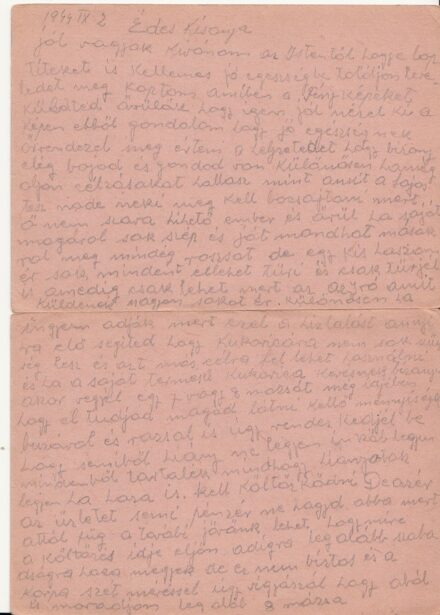 1944 IX 2
Édes Kisanya
jól vagyok Kivánom az Istentől hogy e lap
Titeket is Kellemes jó egészségbe találjon leve
ledet meg Kaptam amiben a fényképeket
Küldted örülök hogy igen jól nézel ki a
Képen ebből gondolom hogy jó egészségnek
örvendezel meg értem a helyzetedet hogy bizony
elég bajod és gondod van Különösen ha még
olyan célzásokat hallasz mint amit a
tesz nade neki meg kell bocsájtani mert
Ő nem szava hihető ember és árúl la saját
magáról sok szép és jót mondhat mások
rol meg mindég rosszat de egy kis haszon
ér sok mindent ellehet türi és csak türjél
is ameddig csak lehet mert az apró amit
Küldenek nagyon sokat ér. Különösen ha
ingyen adják mert ezzel a lisztalást annyi
ra elő segited hogy Kukoricára nem sok szük
ség lesz és azt más célra fel lehet használni
és ha a saját termésű Kukorica Kevésnek bizonyúl
akor vegyél egy pár vagy 2 mázsát még idejében
hogy el tudjad magad látni kellő mennyiségű
búzával és rozsal is úgy rendes Kedjél be
hogy semiből hiany ne légyen inkább legyen
mindenből tartalék minthogy hiányosak
legyen ha lassa is. Kell Költözködni De azér
az üzletet semi pénzér ne hagyd abba mert
attól függ a további jövőnk lehet, hogy mire
a Költözés idje eljön adigra leg alább szaba
dságra haza megyek de ez nem biztos és a
Koma szet méréssel úgy vigyázzál hogy aból
is maradjon leg alább 2 mázsa